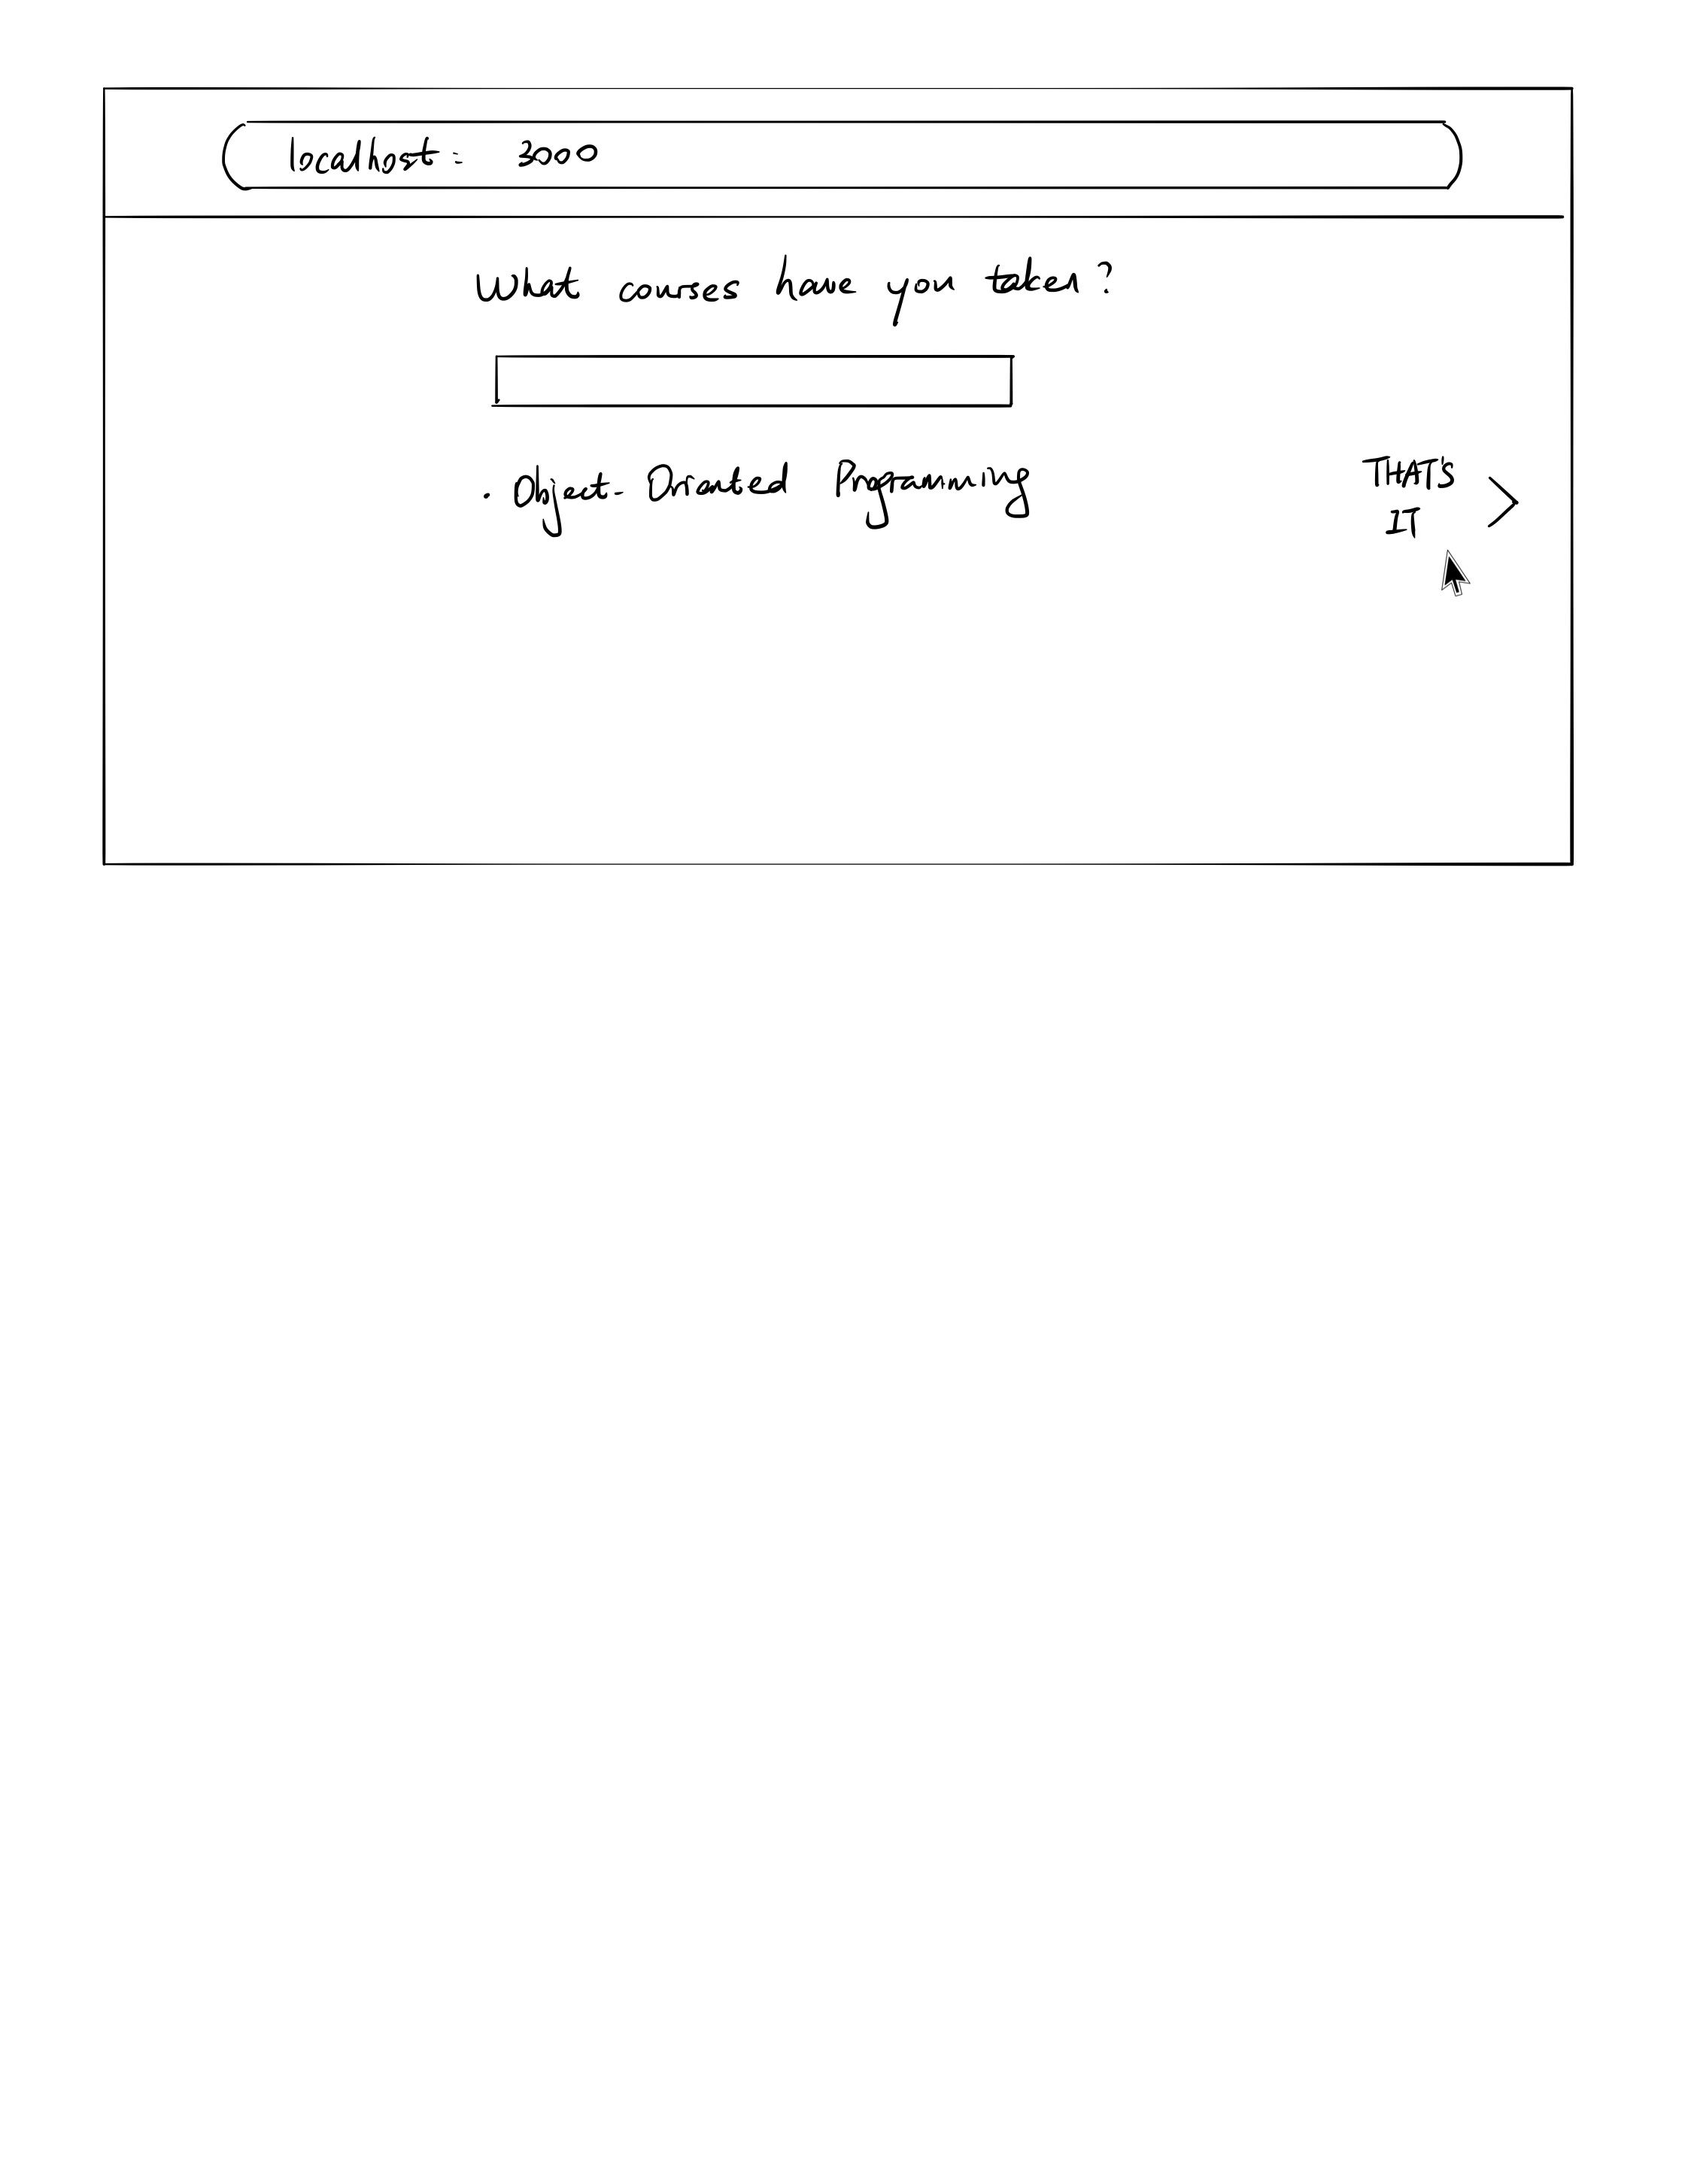 localhost: 3000
What courses have you taken?
. Object-Oriented Programming
THAT'S
IT >